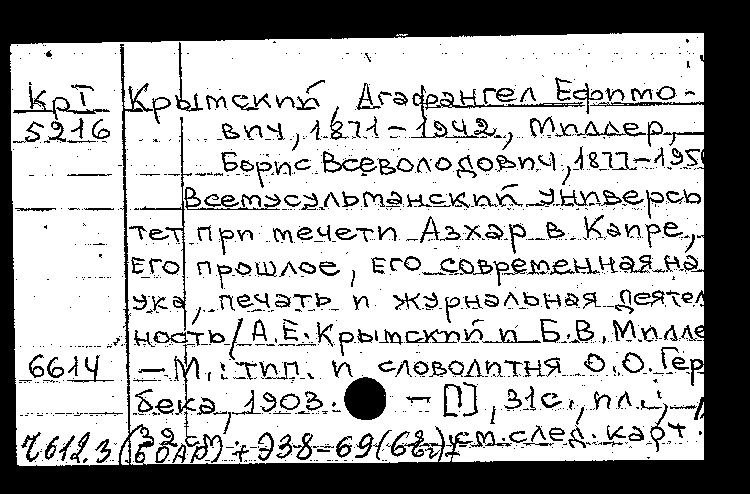 КрТ Крымский, Агафангел Ефимо-
5216 вич, 1871-1942, Миллер,
Борис Всеволодович, 1877-195
Всемусульманский универси
тет при мечети Азхар в Каире,
Его прошлое, его современная на
ука, печать и журнальная деятел
ность / А.Е. Крымский и Б.В. Милле
6614 — М.: тип. и словолитня О.О. Гер
бека, 1903. — [1], 31с., ил.;
32 см. см. след. карт.
Ч612.3 (БОАР) + Э38-69(6Ег)